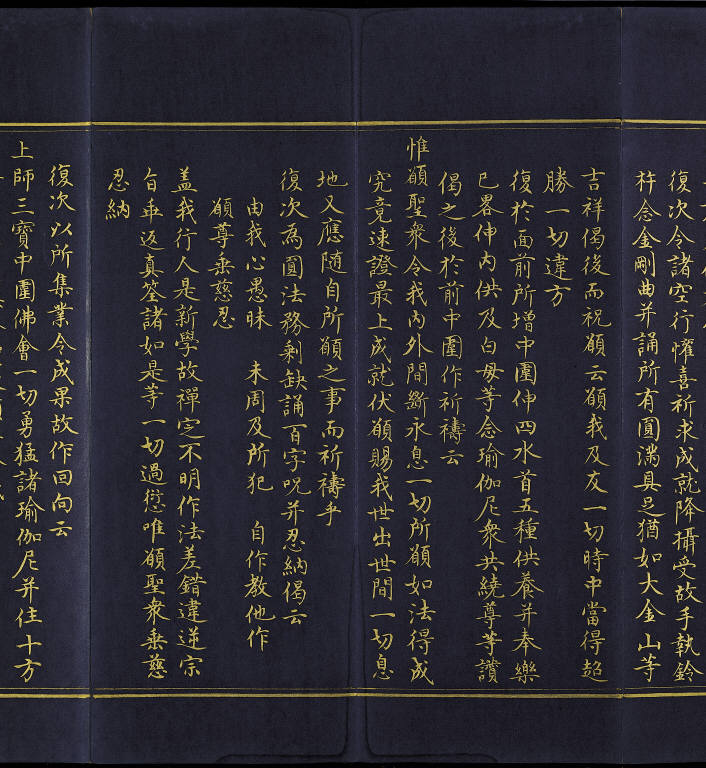 復次令諸空行懽喜祈求成就降攝受故手執鈴
杵念金剛曲并誦所有圓滿具足猶如大金山等
吉祥偈後而祝願云願我及友一切時中當得超
勝一切違方
復於面前所增中圍伸四水首五種供養并奉樂
已畧伸內供及白毋等念瑜伽尼衆共繞尊等讚
偈之後於前中圍作祈禱云
惟願聖衆令我內外間斷永息一切所願如法得成
究竟速證最上成就伏願賜我世出世間一切息
地又應随自所願之事而祈禱乎
復次為圓法務剩缺誦百字呪并忍納偈云
由我心愚昧 未周及所犯 自作教他作
願尊垂慈忍
盖我行人是新學故禪定不明作法差錯違逆宗
旨乖返真筌諸如是等一切過愆唯願聖衆垂慈
忍納
復次以所集業令成果故作回向云
上師三寶中圍佛會一切勇猛諸瑜伽尼并住十方